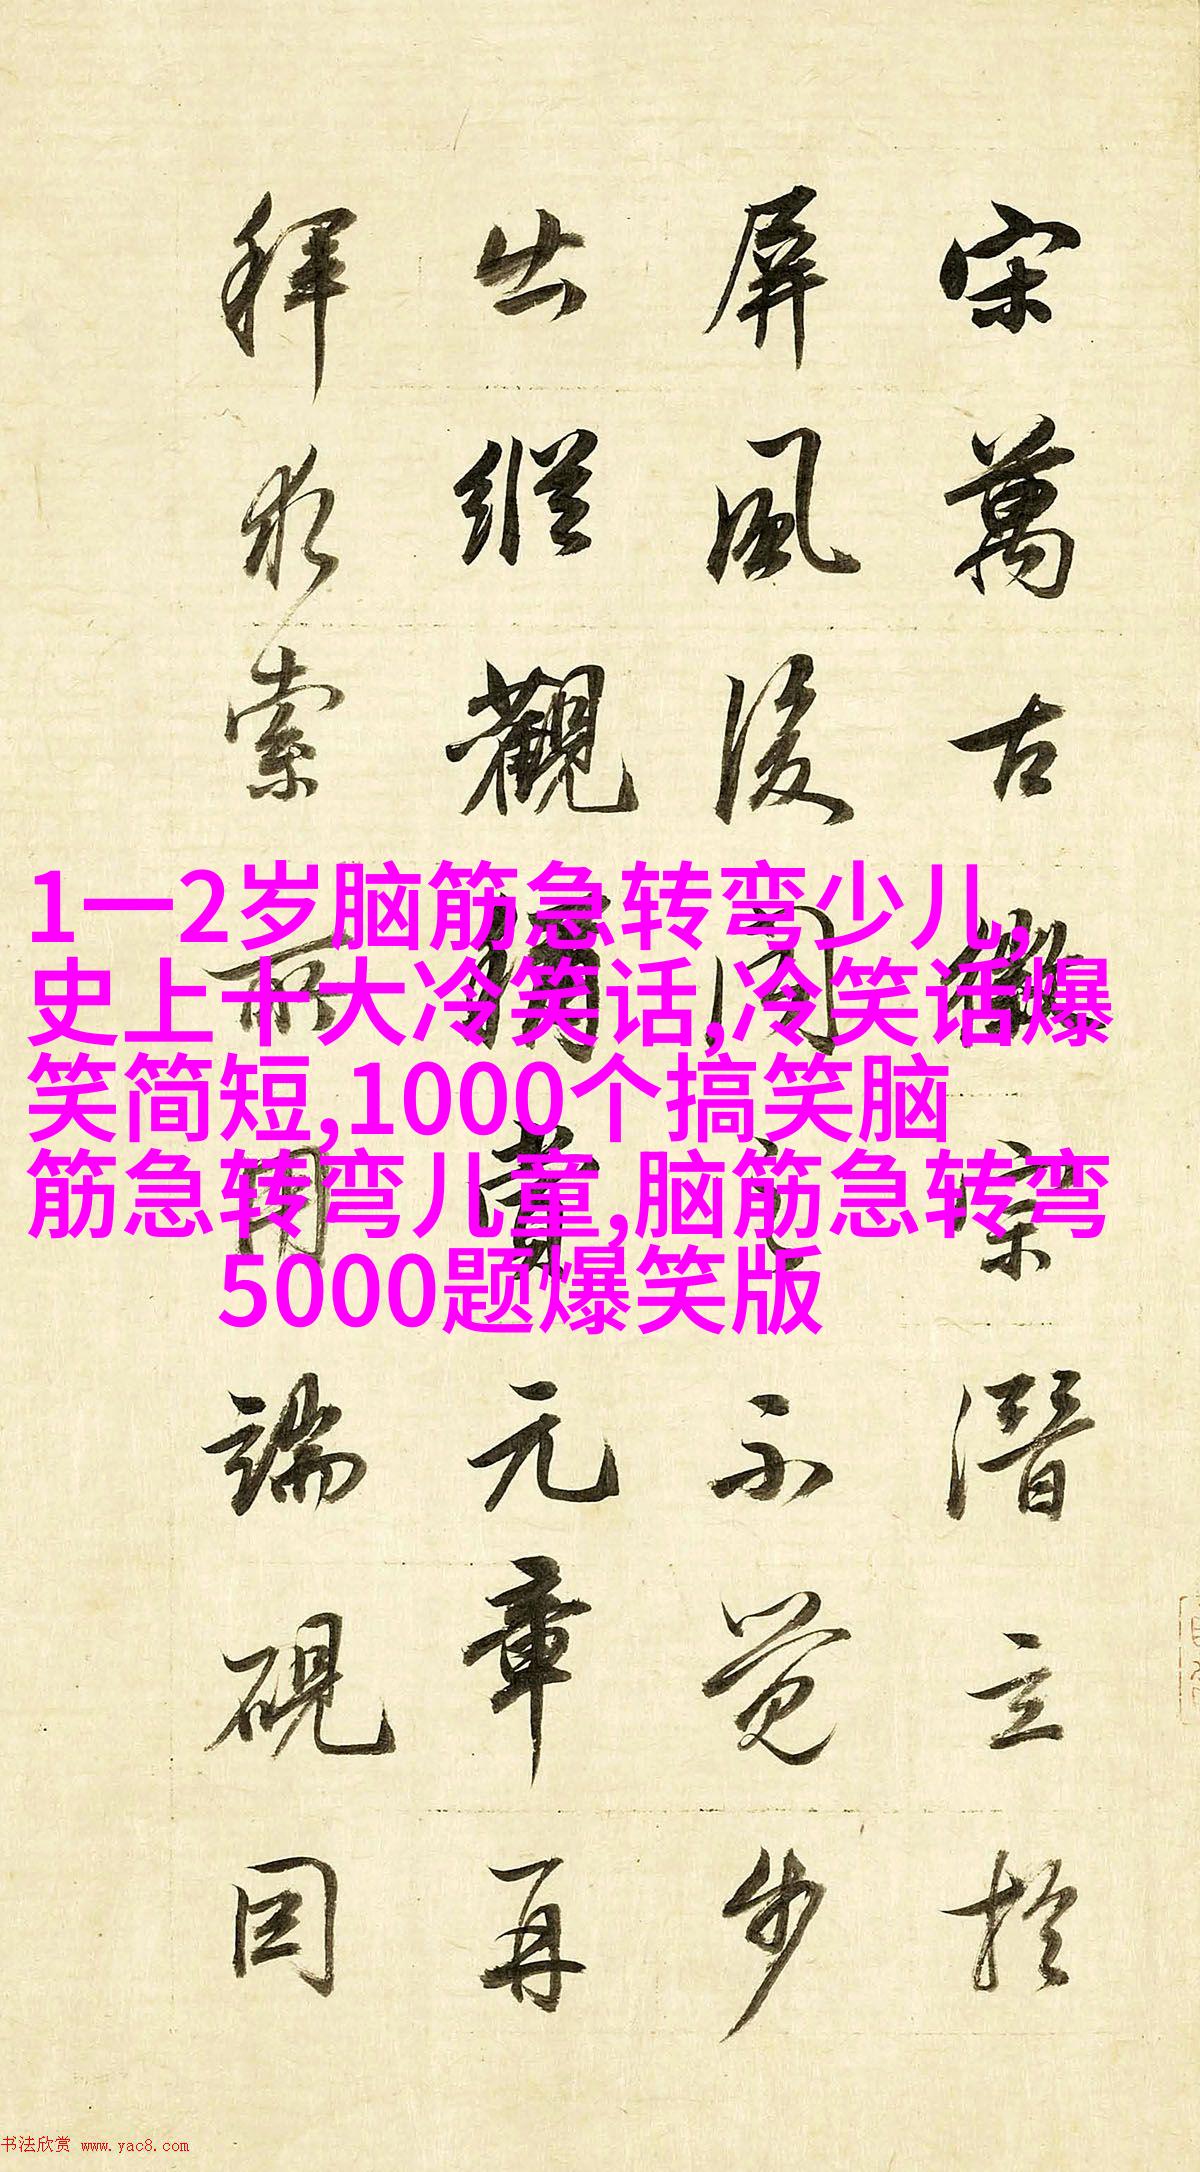 宋萬古徽宗潛立於
屏風後聞之不覺步
出縱觀稱賞元章再
拜求索所用端硯因
1一2岁脑筋急转弯少儿,
史上十大冷笑话,冷笑话爆
笑简短,1000个搞笑脑
筋急转弯儿童,脑筋急转弯
5000题爆笑版
书法欣赏 www.yac8.com